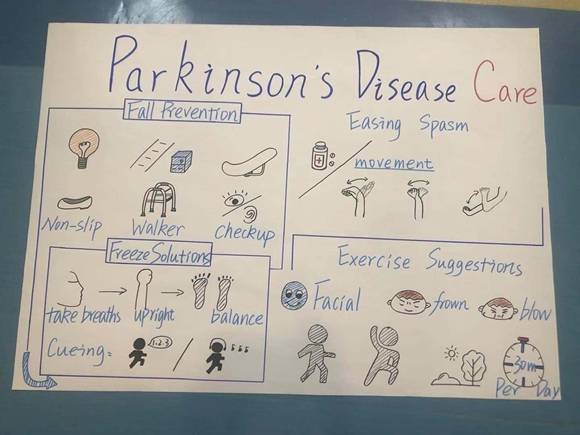 Parkinson's Disease Care
Fall Prevention
Non-slip
Walker
Checkup
Easing Spasm
movement
Freeze Solutions
take breaths
upright
balance
Cueing:
1.2.3
Exercise Suggestions
Facial
frown
blow
30m
Per Day